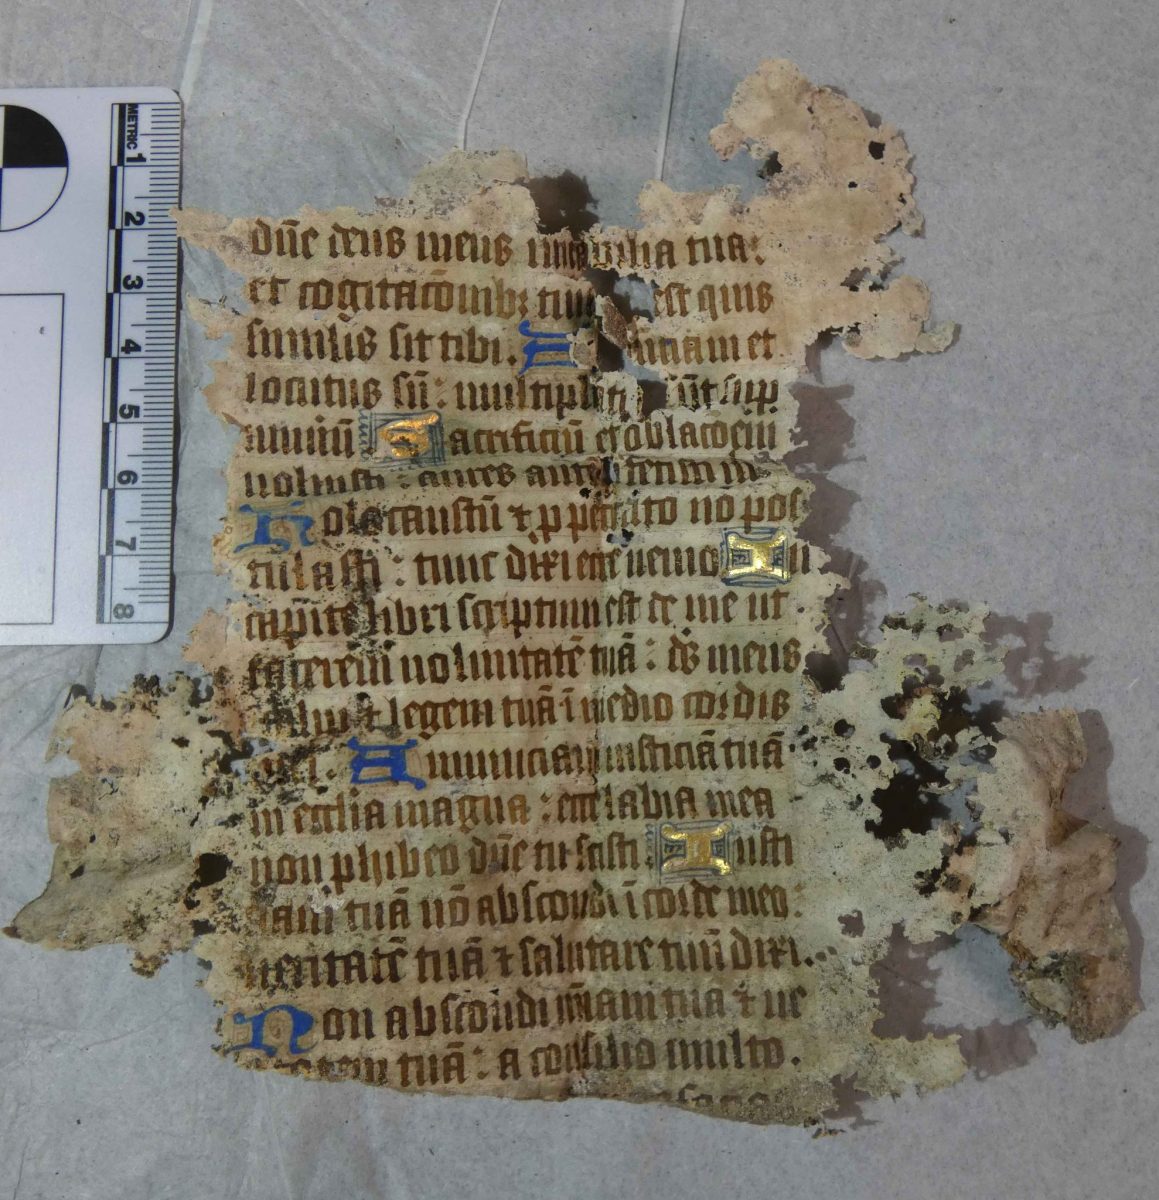 dñe deus meus mirabilia tua:
et cogitacõnibꝫ tuis est quis
similis sit tibi. A nũciaui et
locutus sũ: multiplicati sũt sup
numũ S acrificiũ et oblacõem
noluisti: aures autẽ
H olocaustũ ⁊ p peccato nõ pos
tulasti: tunc dixi ecce uenio I n
capite libri scriptum est de me ut
facerem uoluntatẽ tuã: dꝰ meus
uolui ⁊ legem tuã ĩ medio cordis
mei. A nnunciaui iusticiã tuã
in ecclia magna: ecce labia mea
non ꝓhibeo dñe tu scisti I usti
ciam tuã nõ abscondi ĩ corde meo:
ueritatẽ tuã ⁊ salutare tuũ dixi.
N on abscondi miãm tuã ⁊ ue
ritatem tuã: a consilio multo.